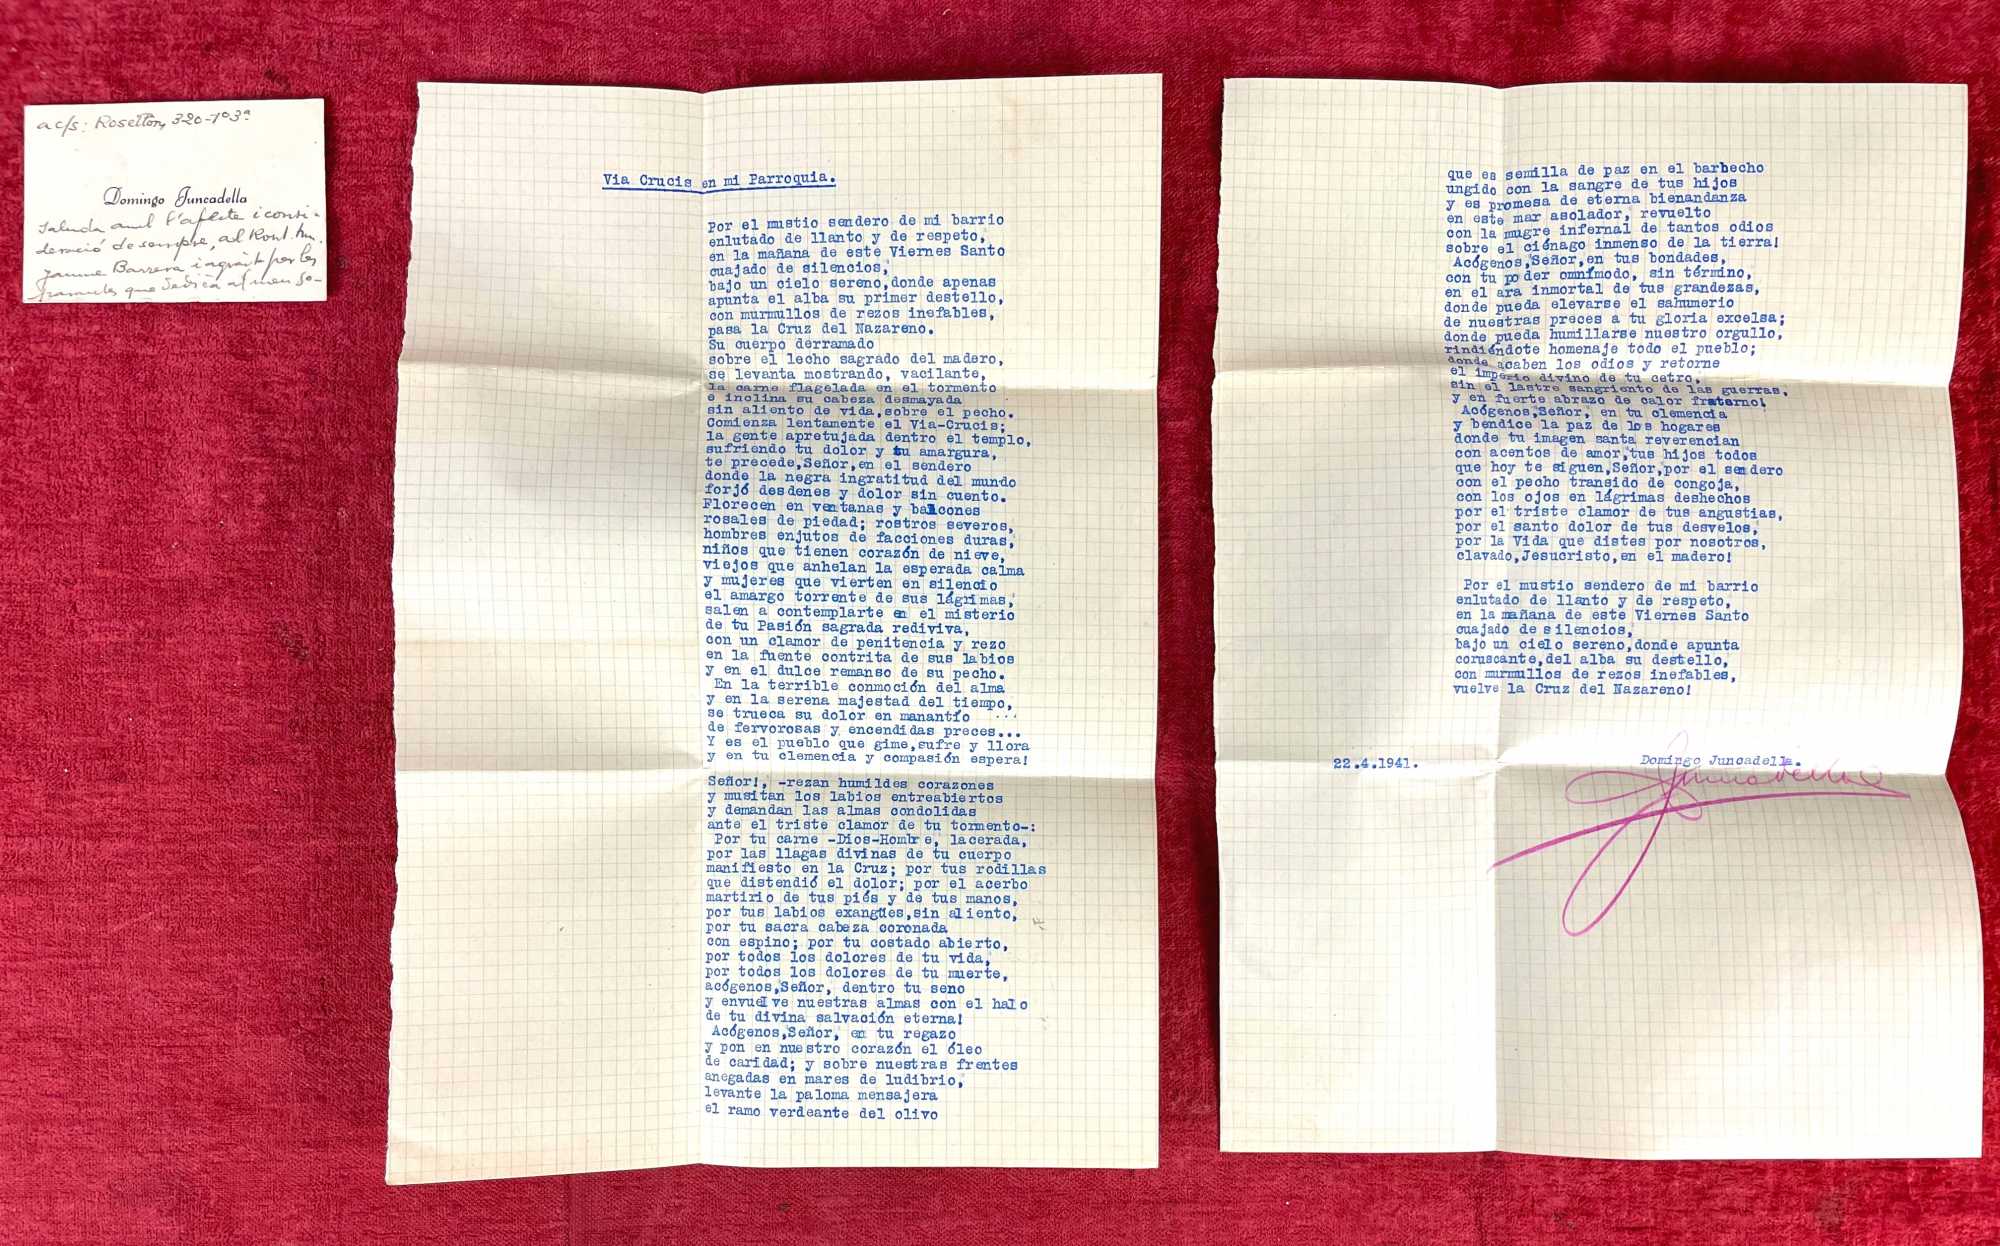 a c/s: Rosellon, 320-1º 3ª
Domingo Juncadella
saluda amb l'afecte i consi-
deració de sempre, al
Jaume Barrera i agraït per les
que dedicà al meu go-
Via Crucis en mi Parroquia.
Por el mustio sendero de mi barrio
enlutado de llanto y de respeto,
en la mañana de este Viernes Santo
cuajado de silencios,
bajo un cielo sereno,donde apenas
apunta el alba su primer destello,
con murmullos de rezos inefables,
pasa la Cruz del Nazareno.
Su cuerpo derramado
sobre el lecho sagrado del madero,
se levanta mostrando, vacilante,
la carne flagelada en el tormento
e inclina su cabeza desmayada
sin aliento de vida,sobre el pecho.
Comienza lentamente el Via-Crucis;
la gente apretujada dentro el templo,
sufriendo tu dolor y tu amargura,
te precede,Señor,en el sendero
donde la negra ingratitud del mundo
forjó desdenes y dolor sin cuento.
Florecen en ventanas y balcones
rosales de piedad; rostros severos,
hombres enjutos de facciones duras,
niños que tienen corazón de nieve,
viejos que anhelan la esperada calma
y mujeres que vierten en silencio
el amargo torrente de sus lágrimas,
salen a contemplarte en el misterio
de tu Pasión sagrada rediviva,
con un clamor de penitencia y rezo
en la fuente contrita de sus labios
y en el dulce remanso de su pecho.
En la terrible conmoción del alma
y en la serena majestad del tiempo,
se trueca su dolor en manantío ...
de fervorosas y encendidas preces...
Y es el pueblo que gime,sufre y llora
y en tu clemencia y compasión espera!
Señor!, -rezan humildes corazones
y musitan los labios entreabiertos
y demandan las almas condolidas
ante el triste clamor de tu tormento-:
Por tu carne -Dios-Hombre, lacerada,
por las llagas divinas de tu cuerpo
manifiesto en la Cruz; por tus rodillas
que distendió el dolor; por el acerbo
martirio de tus piés y de tus manos,
por tus labios exangües,sin aliento,
por tu sacra cabeza coronada
con espino; por tu costado abierto,
por todos los dolores de tu vida,
por todos los dolores de tu muerte,
acógenos,Señor, dentro tu seno
y envuelve nuestras almas con el halo
de tu divina salvación eterna!
Acógenos,Señor, en tu regazo
y pon en nuestro corazón el óleo
de caridad; y sobre nuestras frentes
anegadas en mares de ludibrio,
levante la paloma mensajera
el ramo verdeante del olivo
que es semilla de paz en el barbecho
ungido con la sangre de tus hijos
y es promesa de eterna bienandanza
en este mar asolador, revuelto
con la mugre infernal de tantos odios
sobre el ciénago inmenso de la tierra!
Acógenos,Señor,en tus bondades,
con tu poder omnímodo, sin término,
en el ara inmortal de tus grandezas,
donde pueda elevarse el sahumerio
de nuestras preces a tu gloria excelsa;
donde pueda humillarse nuestro orgullo,
rindiéndote homenaje todo el pueblo;
donde acaben los odios y retorne
el imperio divino de tu cetro,
sin el lastre sangriento de las guerras,
y en fuerte abrazo de calor fraterno!
Acógenos,Señor, en tu clemencia
y bendice la paz de los hogares
donde tu imagen santa reverencian
con acentos de amor,tus hijos todos
que hoy te siguen,Señor,por el sendero
con el pecho transido de congoja,
con los ojos en lágrimas deshechos
por el triste clamor de tus angustias,
por el santo dolor de tus desvelos,
por la Vida que distes por nosotros,
clavado,Jesucristo,en el madero!
Por el mustio sendero de mi barrio
enlutado de llanto y de respeto,
en la mañana de este Viernes Santo
cuajado de silencios,
bajo un cielo sereno,donde apunta
coruscante,del alba su destello,
con murmullos de rezos inefables,
vuelve la Cruz del Nazareno!
22.4.1941.
Domingo Juncadella.
Juncadella